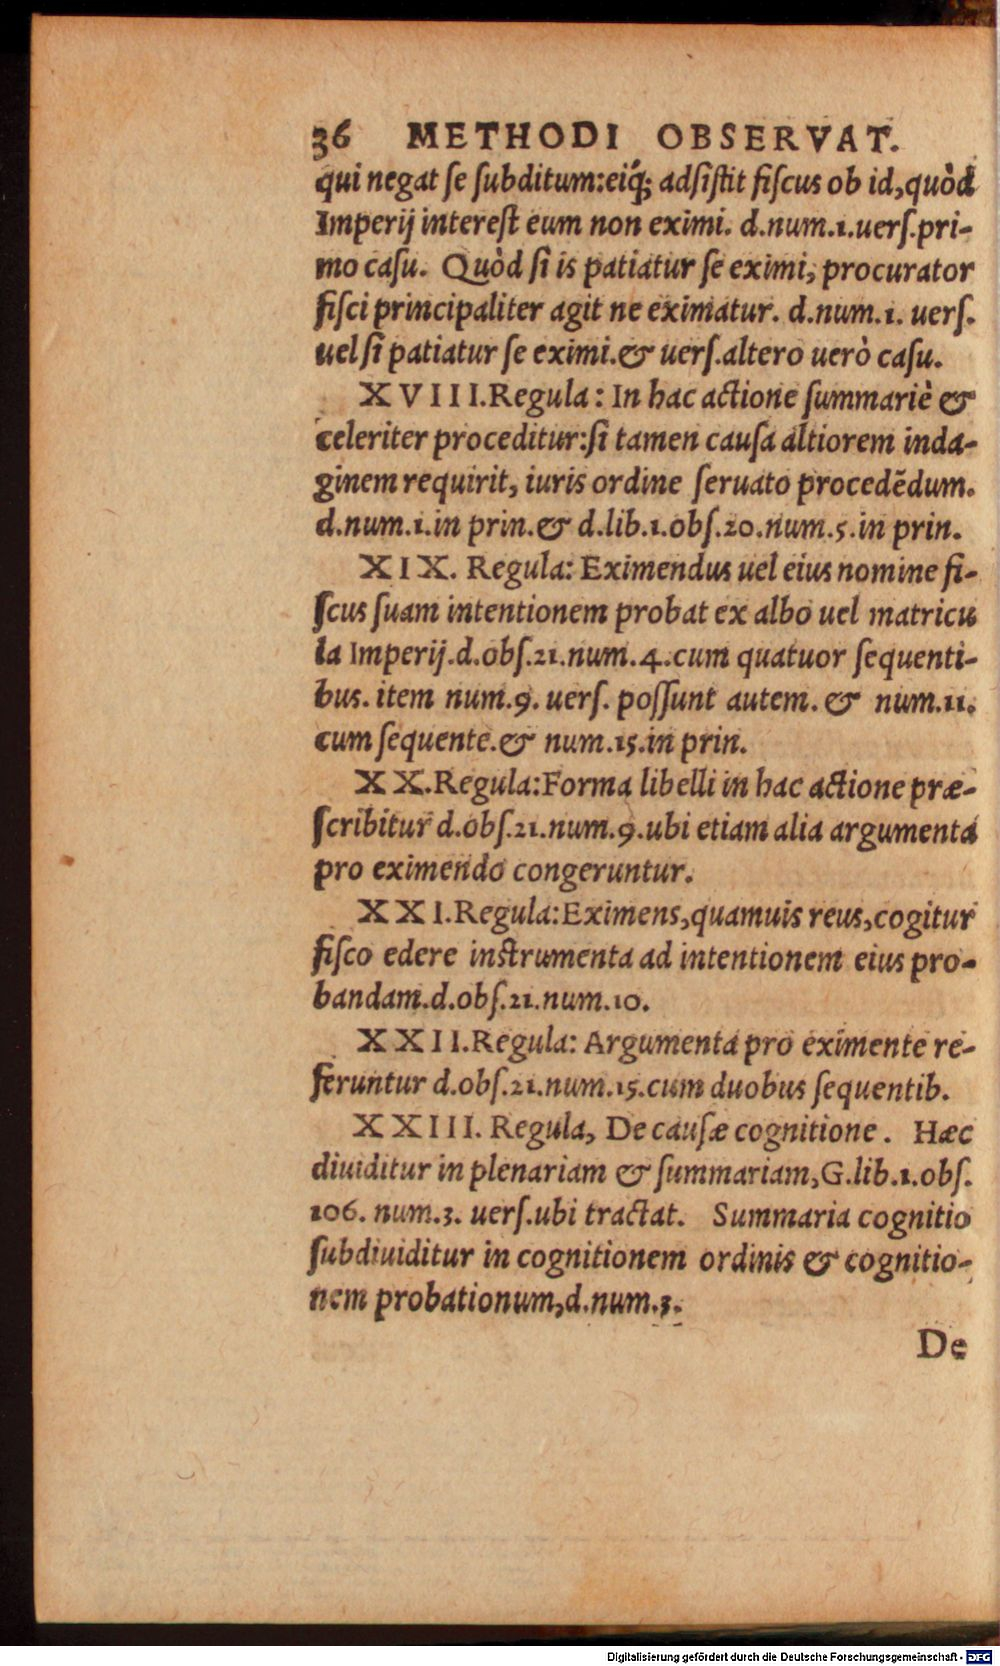 36 METHODI OBSERVAT.
qui negat se subditum:eiq́; adsistit fiscus ob id,quòd
Imperij interest eum non eximi. d.num.1.uers.pri-
mo casu. Quòd si is patiatur se eximi, procurator
fisci principaliter agit ne eximatur. d.num.1. uers.
uel si patiatur se eximi.& uers.altero uerò casu.
XVIII.Regula: In hac actione summariè &
celeriter proceditur:si tamen causa altiorem inda-
ginem requirit, iuris ordine seruato procedēdum.
d.num.1.in prin.& d.lib.1.obs.20.num.5.in prin.
XIX. Regula: Eximendus uel eius nomine fi-
scus suam intentionem probat ex albo uel matricu
la Imperij.d.obs.21.num.4.cum quatuor sequenti-
bus. item num.9. uers. possunt autem. & num.11.
cum sequente.& num.15.in prin.
XX.Regula:Forma libelli in hac actione præ-
scribitur d.obs.21.num.9.ubi etiam alia argumenta
pro eximendo congeruntur.
XXI.Regula:Eximens,quamuis reus,cogitur
fisco edere instrumenta ad intentionem eius pro-
bandam.d.obs.21.num.10.
XXII.Regula: Argumenta pro eximente re-
feruntur d.obs.21.num.15.cum duobus sequentib.
XXIII. Regula, De causæ cognitione. Hæc
diuiditur in plenariam & summariam,G.lib.1.obs.
106. num.3. uers.ubi tractat. Summaria cognitio
subdiuiditur in cognitionem ordinis & cognitio-
nem probationum,d.num.3.
De
Digitalisierung gefördert durch die Deutsche Forschungsgemeinschaft - DFG